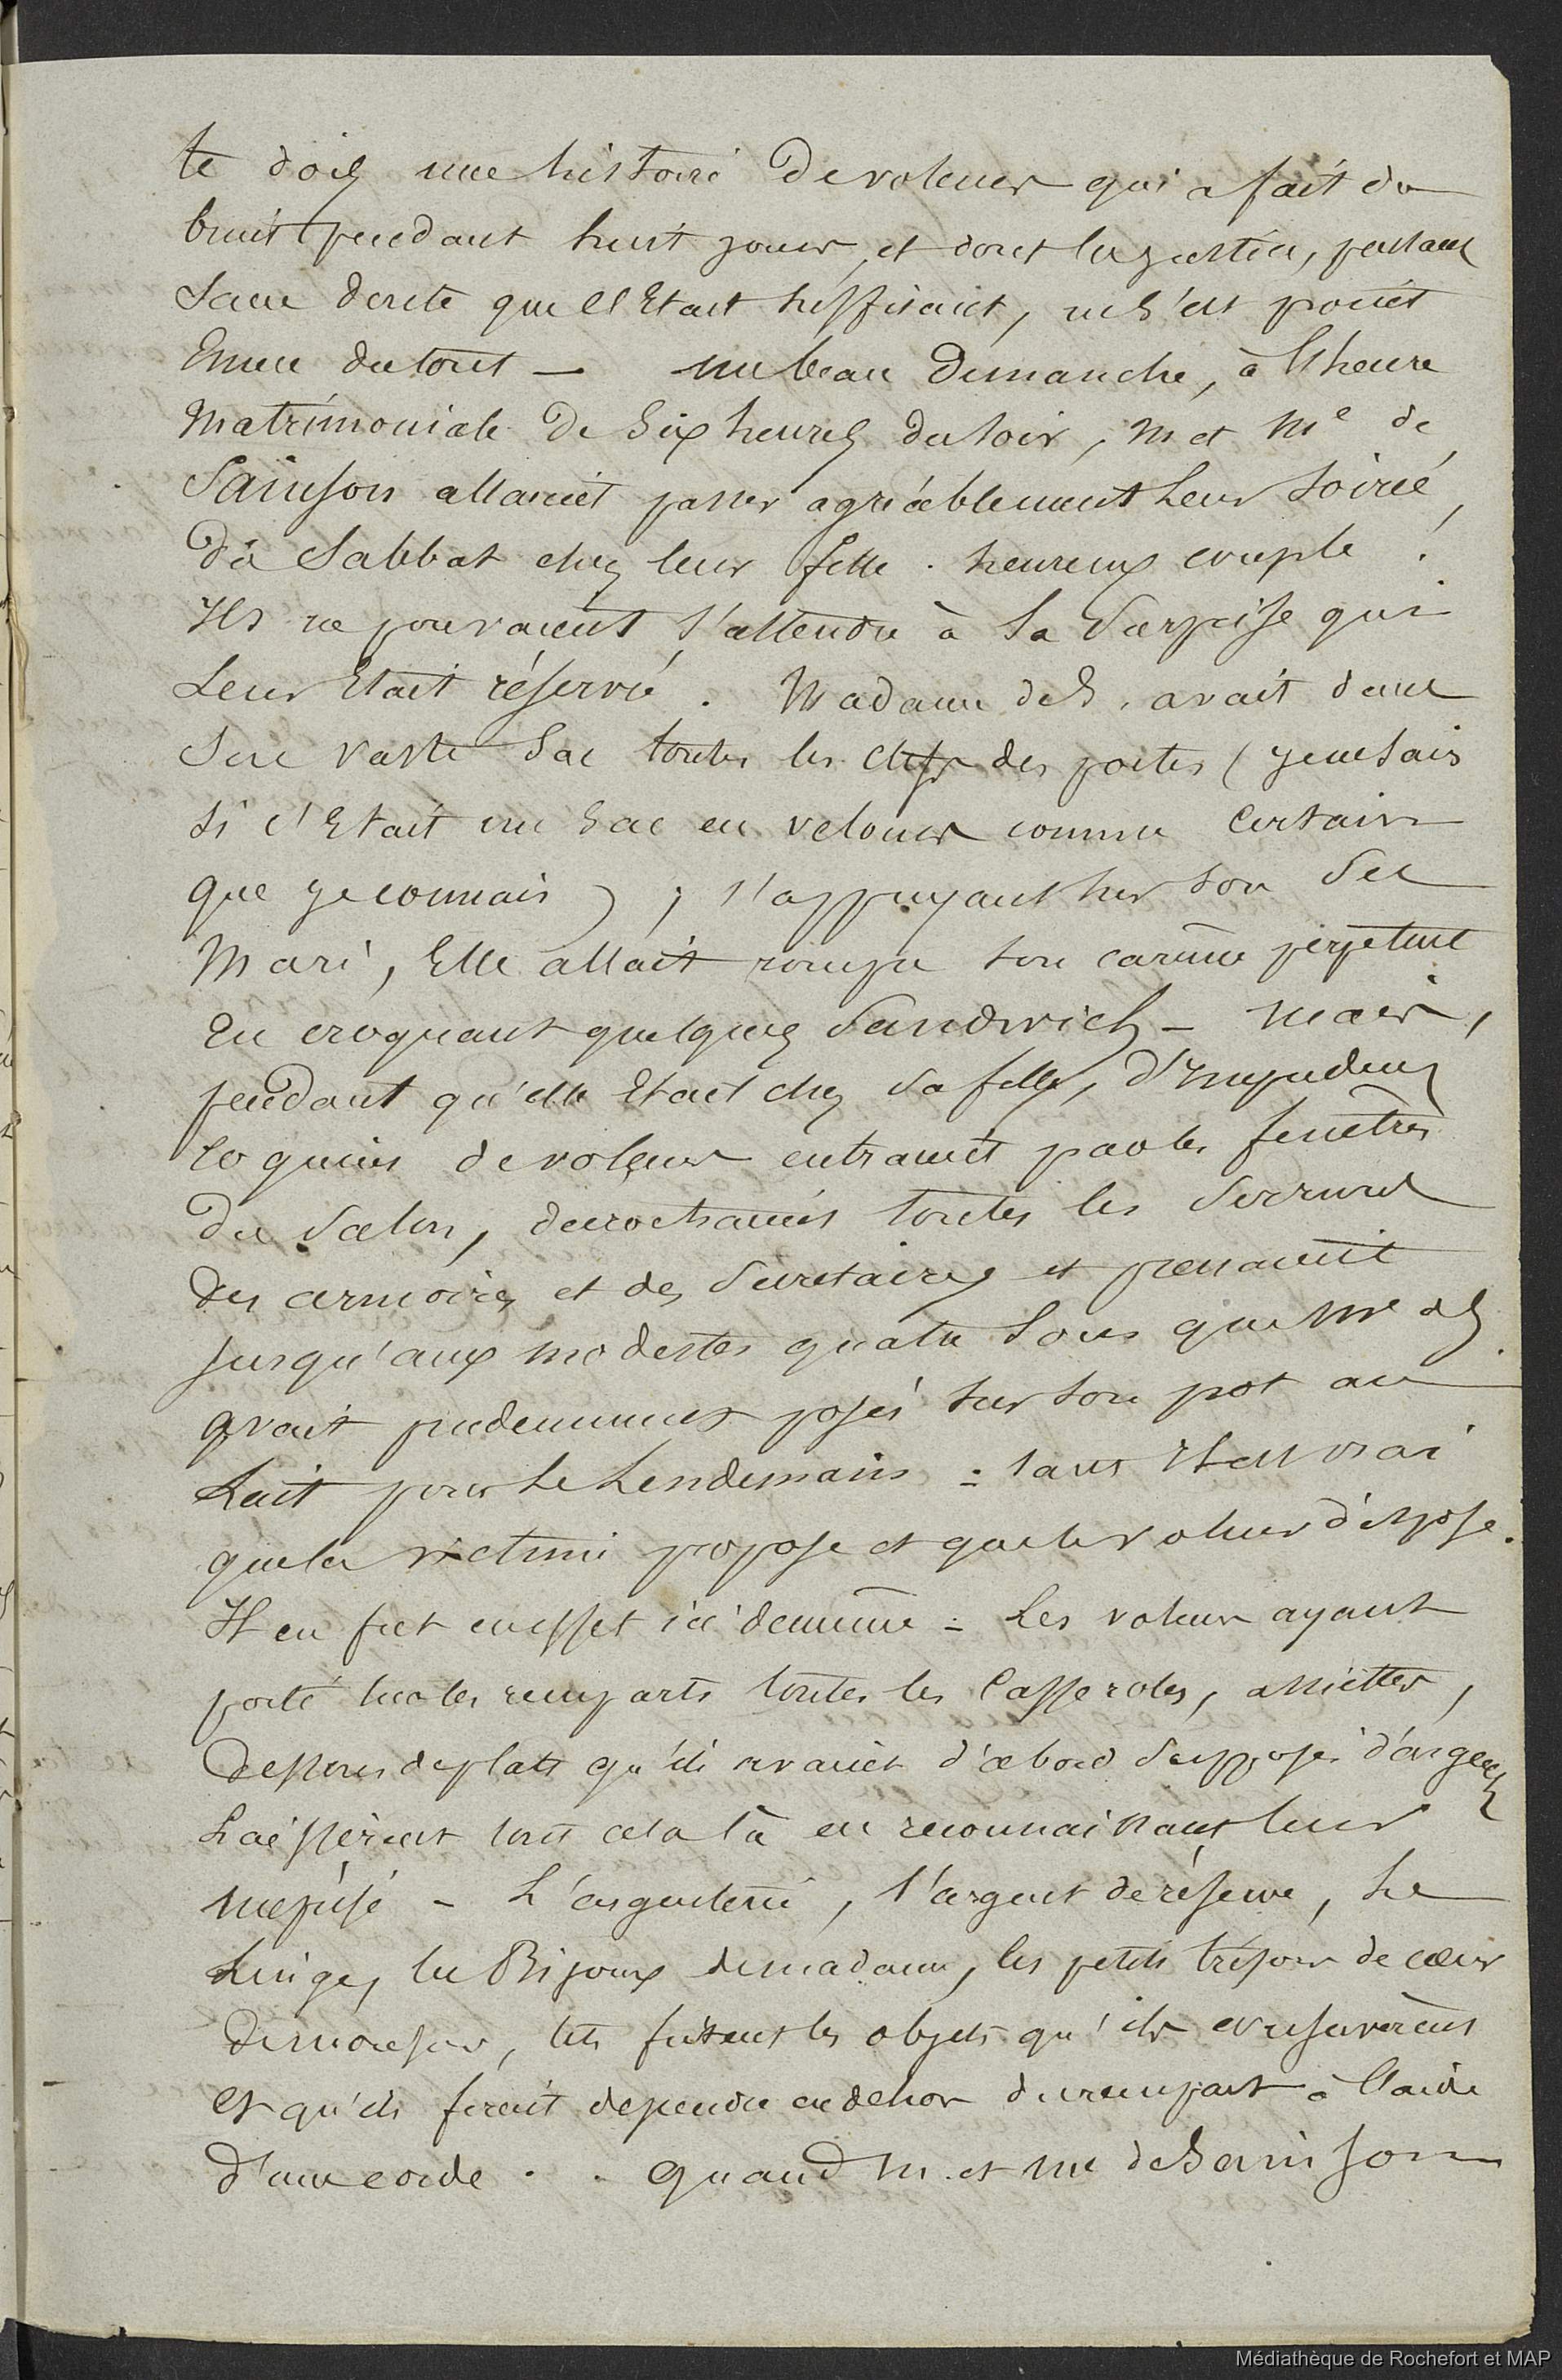 te dois une histoire de voleurs qui a fait du
bruit pendant huit jours, et dont la justice, pensant
sans doute que c'était suffisant, ne s'est point
émue du tout — un beau dimanche, à l'heure
matrimoniale de six heures du soir, M et Me de
Sainson allaient passer agréablement leur soirée,
du Sabbat chez leur fille. heureux couple !
Ils ne pouvaient s'attendre à la surprise qui
leur était réservée. Madame de S. avait dans
son vaste sac toutes les clefs des portes (je ne sais
si c'était un sac en velours comme certain
que je connais) ; s'appuyant sur son sec
mari, elle allait rompre son carême perpétuel
en croquant quelques sandwichs — mais,
pendant qu'elle était chez sa fille, d'impudens
coquins de voleurs entraient par les fenêtres
du salon, décrochaient toutes les serrures
des armoires et des secrétaires et prenaient
jusqu'aux modestes quatre sous que Me de S.
avait prudemment posés sur son pot au
lait pour le lendemain = tant il est vrai
que la victime propose et que le voleur dispose.
Il en fut en effet ici de même = les voleurs ayant
porté sur les remparts toutes les casseroles, assiettes,
dessous de plats qu'ils avaient d'abord supposés d'argent
laissèrent tout cela là en reconnaissant leur
méprise — l'argenterie, l'argent de réserve, le
linge, les bijoux de madame, les petits trésors de cœur
de monsieur, tels furent les objets qu'ils conservèrent
et qu'ils firent descendre en dehors du rempart à l'aide
d'une corde . . quand M. et Me de Sainson
Médiathèque de Rochefort et MAP